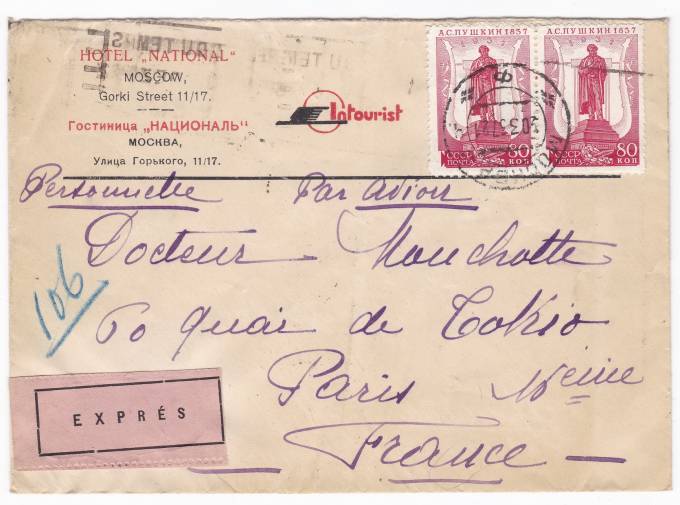 HOTEL „NATIONAL"
MOSCOW,
Gorki Street 11/17.
Гостиница „НАЦИОНАЛЬ"
МОСКВА,
Улица Горького, 11/17.
Intourist
А.С.ПУШКИН 1837
СССР
ПОЧТА
80
КОП
А.С.ПУШКИН 1837
1937
СССР
ПОЧТА
80
КОП
МОСКВА
Personnelle Par Avion
Docteur Mouchotte
106
50 Quai de Tokio
Paris 16eme
France
EXPRÉS